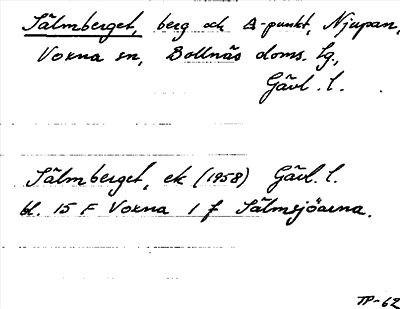 Sälmberget, berg och △-punkt, Njupan,
Voxna sn, Bollnäs doms. lg.,
Gävl. l.
Sälmberget, ek (1958) Gävl. l.
bl. 15 F Voxna 1 f Sälmsjöarna.
TP-62